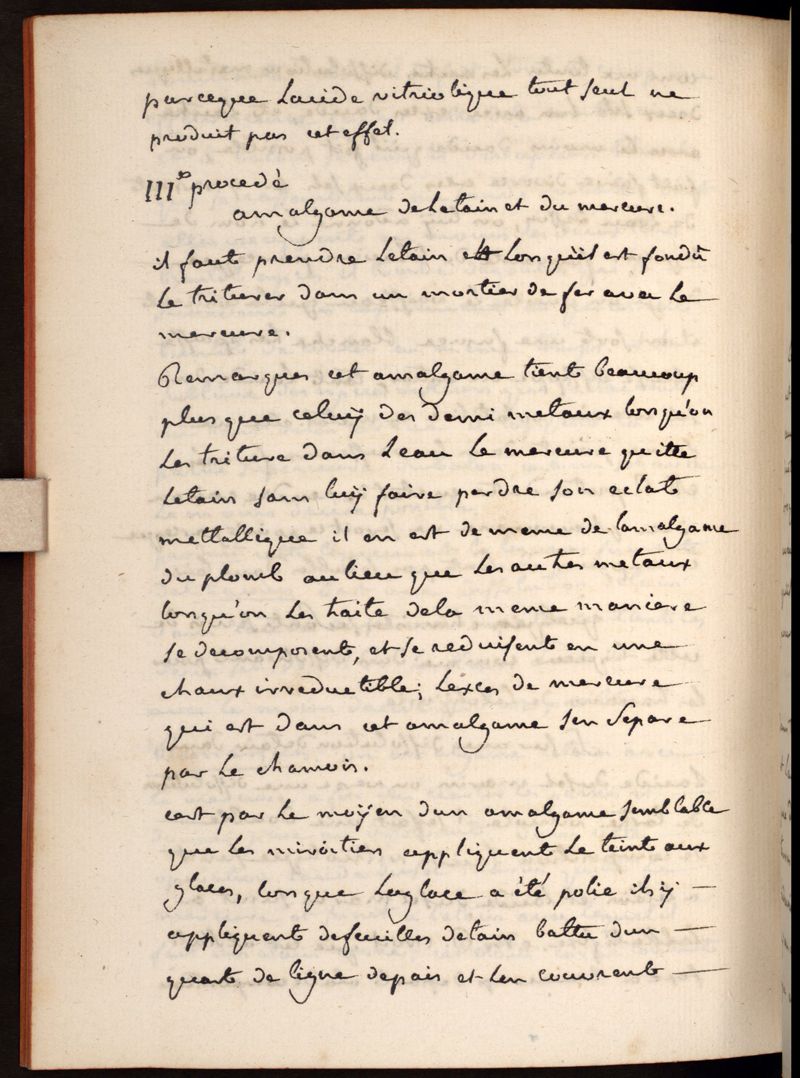 parceque Lacide vitriolique tout seul ne
produit pas cet effet.
IIIe procedé
amalgame de Letain et du mercure.
il faut prendre Letain et Lorsqu'il est fondu
Le triturer dans un mortier de fer avec Le
mercure.
Remarques cet amalgame tient beaucoup
plus que celuÿ des demi metaux lorsqu'on
Les triture dans Leau Le mercure quitte
Letain sans luÿ faire perdre son eclat
mettallique il en est de meme de lamalgame
du plomb au lieu que Les autres metaux
lorsqu'on Les traite dela meme maniere
se decomposent, et se reduisent en une
chaux irreductible; Lexces de mercure
qui est dans cet amalgame sen separe
par Le chamois.
cest par Le moÿen dun amalgame semblable
que Les miroitiers appliquent Le teint aux
glaces, lorsque La glace a été polie ils ÿ —
appliquent de feuilles detain battu dun —
quart de ligne depais et Len couvrent —